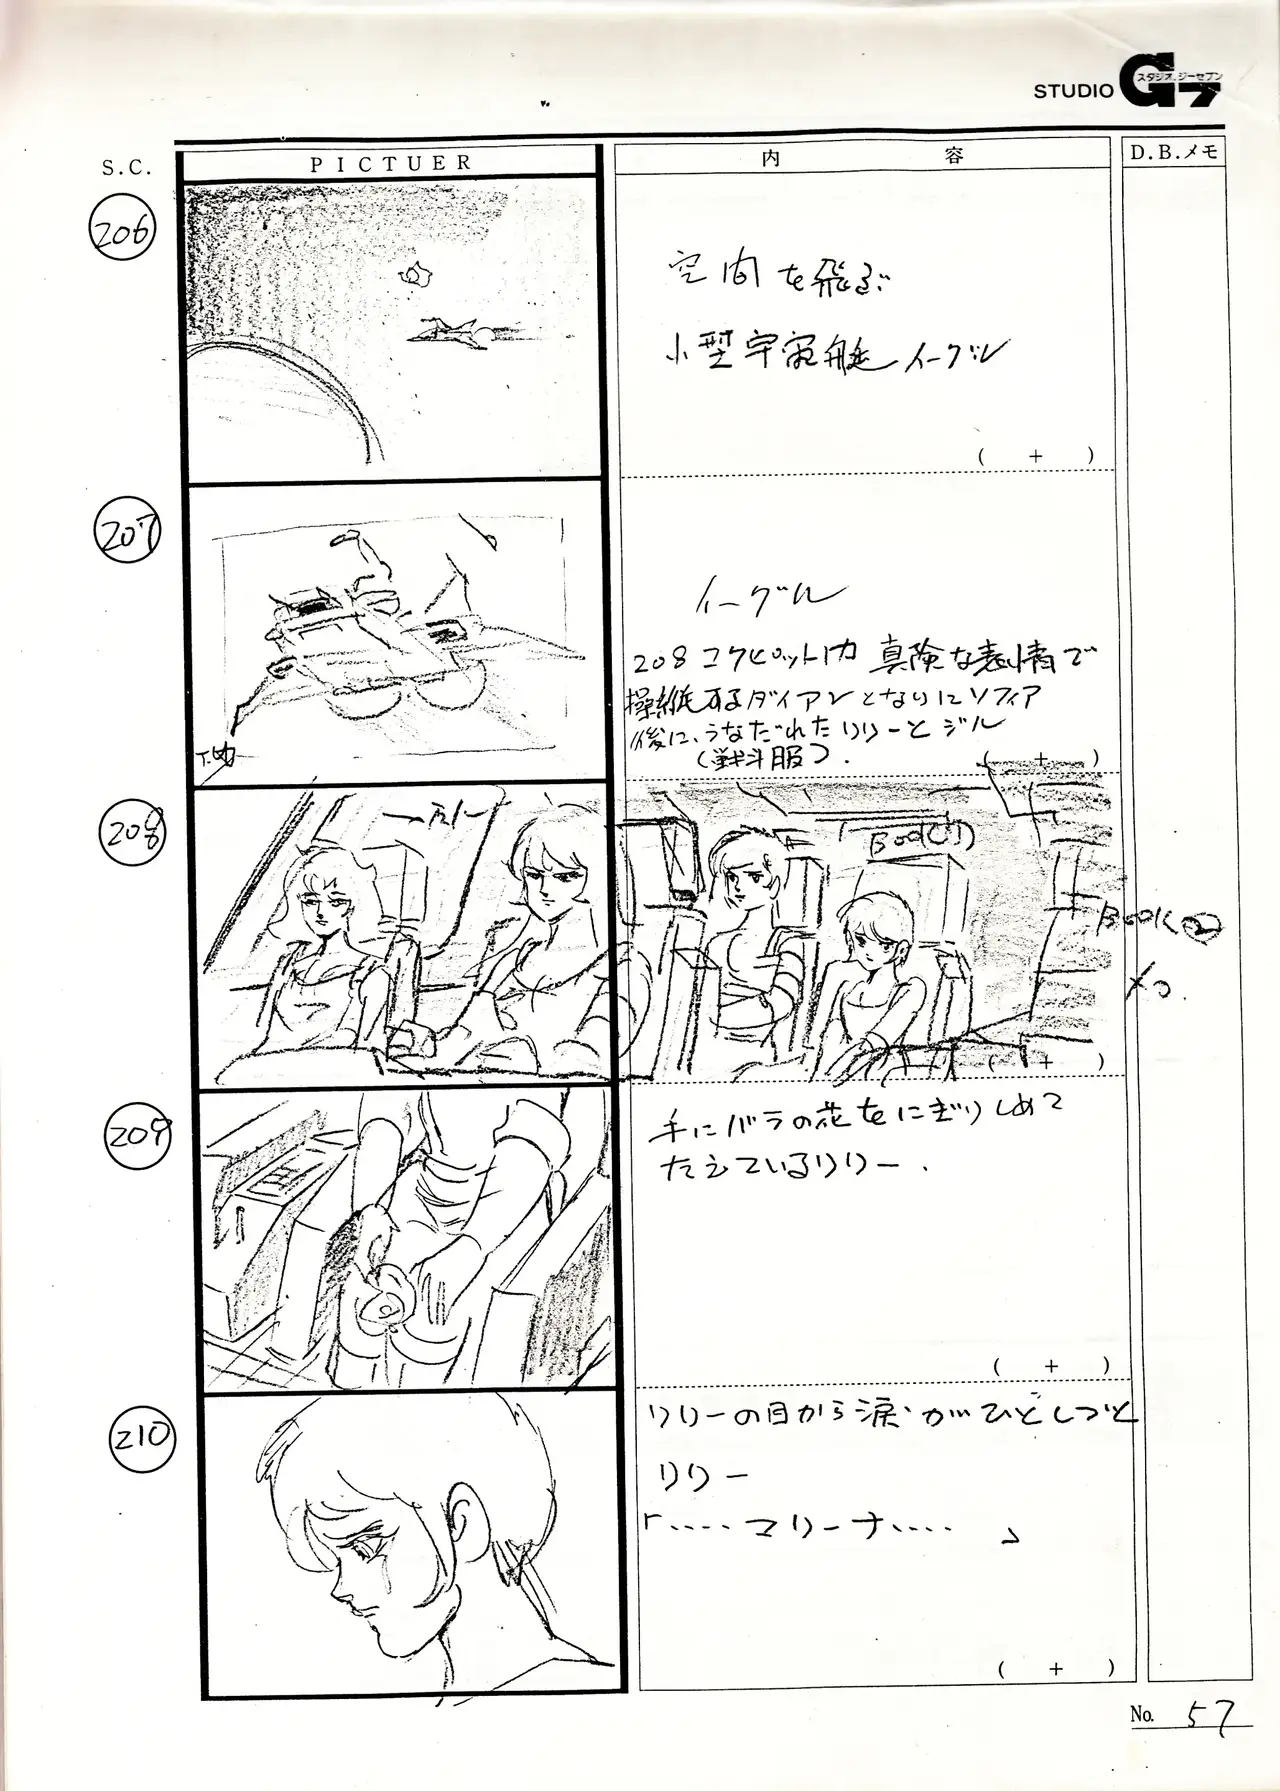 STUDIO G7
スタジオ.ジーセブン
S.C.
PICTUER
内容
D.B.メモ
206
空間を飛ぶ
小型宇宙艇イーグル
( + )
207
イーグル
208 コクピット内 真険な表情で
操縦するダイアンとなりにソフィア
後に、うなだれたリリーとジル
(戦斗服).
( + )
T.
208
BOOK(1)
BOOK②
( + )
209
手にバラの花をにぎりしめて
たえているリリー.
( + )
210
リリーの目から涙がひとしづく
リリー
「‥‥マリーナ‥‥」
( + )
No. 57